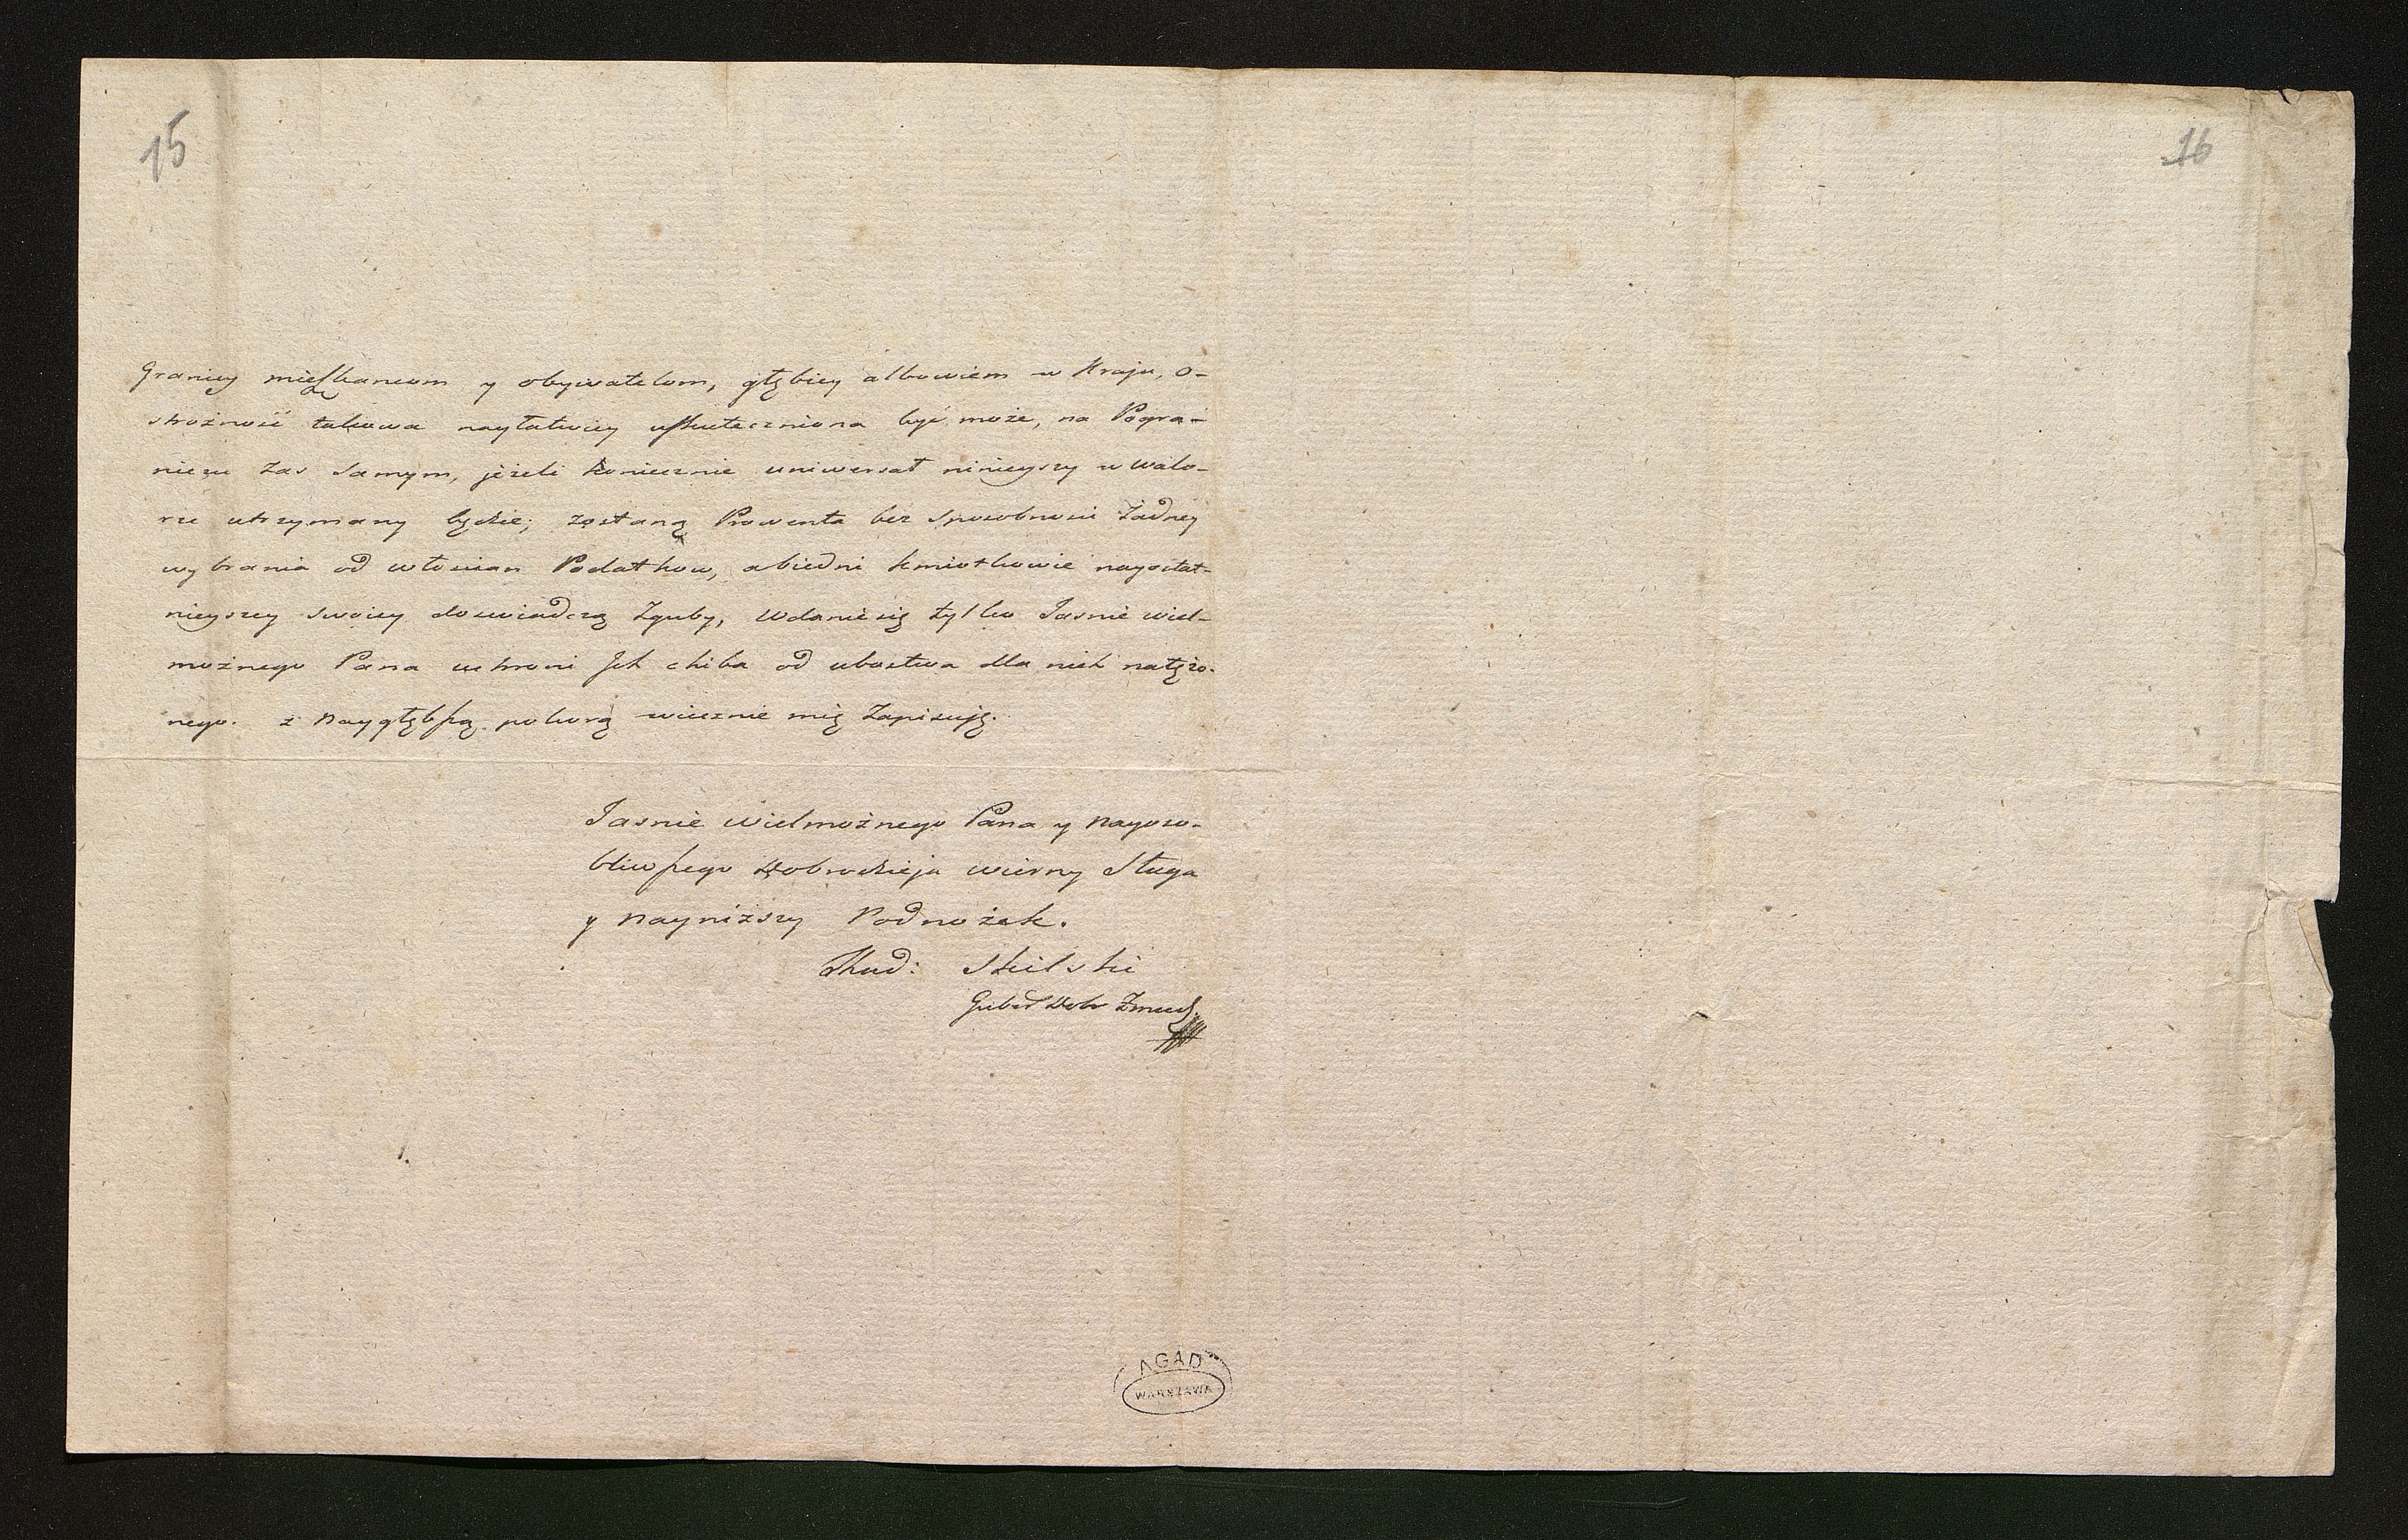 15
16
Granicy mięszkancom y obywatelom, głębiey albowiem w Kraju, o-
strożność takowa nayłatwiey uskuteczniona być może, na Pogra-
niczu zas samym, jeżeli koniecznie uniwersał ninieyszy w walo-
rze utrzymany będzie; zostaną Prowenta bez sposobnosci żadney
wybrania od włoscian Podatkow, a biedni kmiotkowie nayostat-
nieyszey swoiey doswiadczą zguby, wdanie się tylko Jasnie wiel-
możnego Pana uchroni Jch chiba od ubostwa dla nich natężo-
nego. z naygłębszą pokorą wiecznie mię zapisuję.
Jasnie Wielmożnego Pana y nayoso-
bliwszego Dobrodzieja wierny Sługa
y nayniższy Podnożek.
Thad: Skilski
Żmudz
AGAD
WARSZAWA